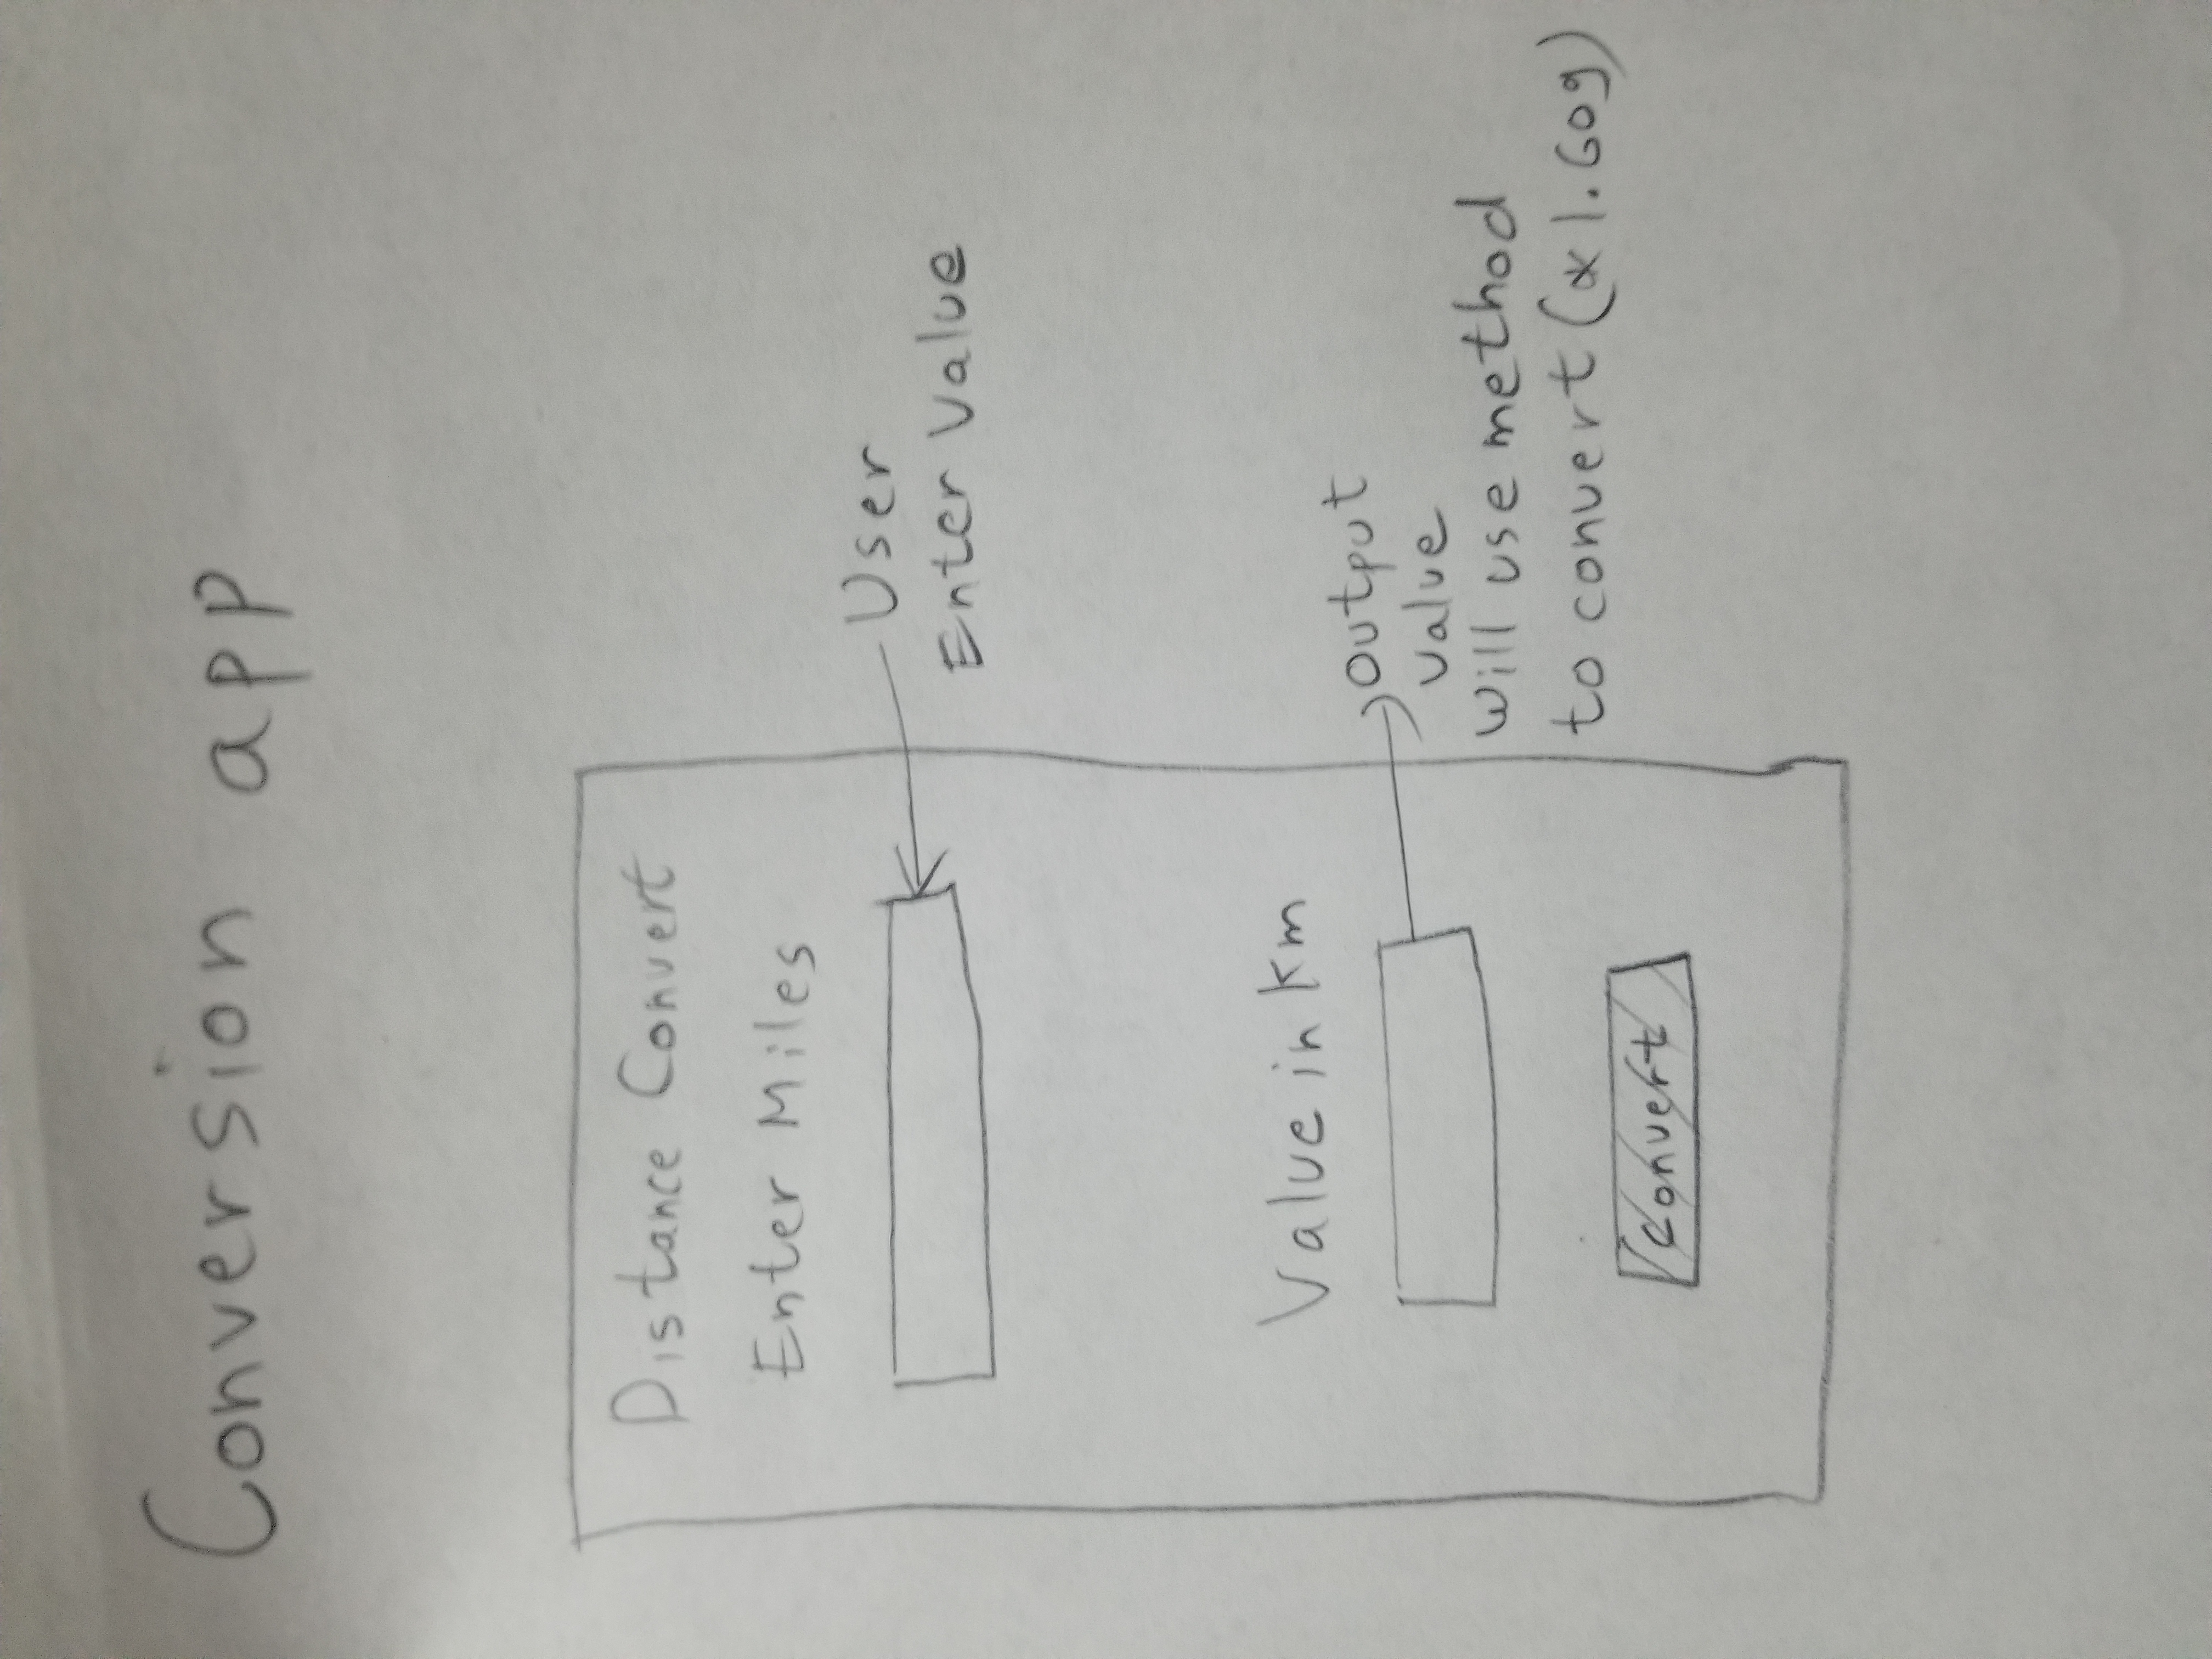 Conversion app
Distance Convert
Enter Miles
User
Enter Value
Value in Km
output
value
will use method
to convert (* 1.609)
Convert